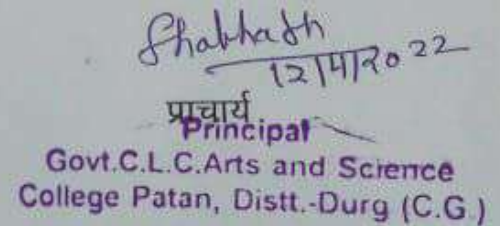 12/4/2022
प्राचार्य
Principal
Govt.C.L.C.Arts and Science
College Patan, Distt.-Durg (C.G.)